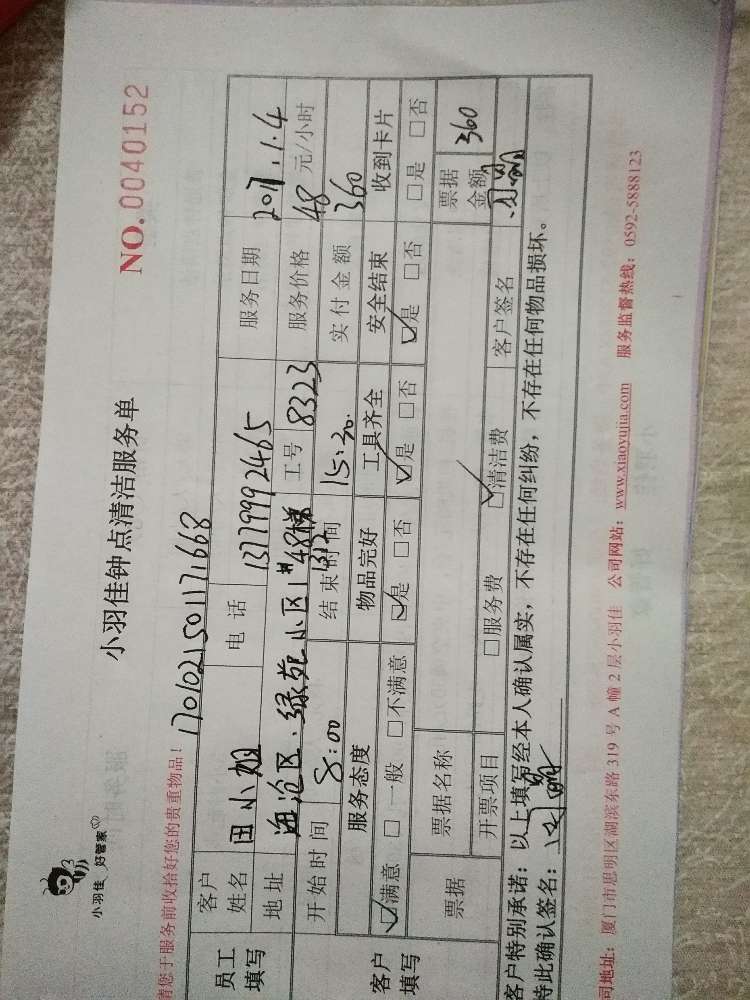 小羽佳 好管家
小羽佳钟点清洁服务单
NO.0040152
请您于服务前收拾好您的贵重物品！ 1701021501171668
员工填写 客户姓名 田小姐 电话 13779992465 服务日期 2017.1.4
地址 海沧区.绿苑小区1#48梯 1312 工号 8323 服务价格 48 元/小时
开始时间 8:00 结束时间 15:30. 实付金额 360
客户填写 服务态度 物品完好 工具齐全 安全结束 收到卡片
☑满意 □一般 □不满意 ☑是 □否 ☑是 □否 ☑是 □否 □是 □否
票据 票据名称 票据金额 360
开票项目 □服务费 ☑清洁费 客户签名
客户特别承诺：以上填写经本人确认属实，不存在任何纠纷，不存在任何物品损坏。
特此确认签名：
司地址：厦门市思明区湖滨东路319号A幢2层小羽佳 公司网站：www.xiaoyujia.com 服务监督热线：0592-5888123